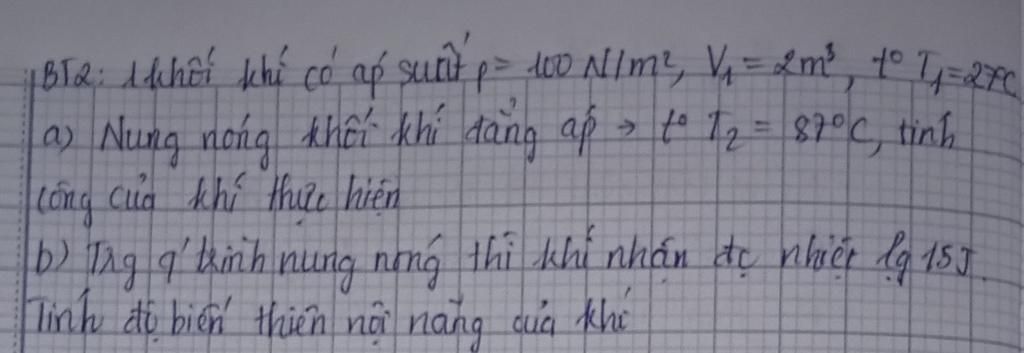 BT2: 1 khối khí có áp suất p = 100 N/m², V₁ = 2m³, t° T₁ = 27°C
a) Nung nóng khối khí đẳng áp → t° T₂ = 87°C, tính
công của khí thực hiện
b) Trg q' trình nung nóng thì khí nhận đc nhiệt lg 15J.
Tính độ biến thiên nội năng của khí